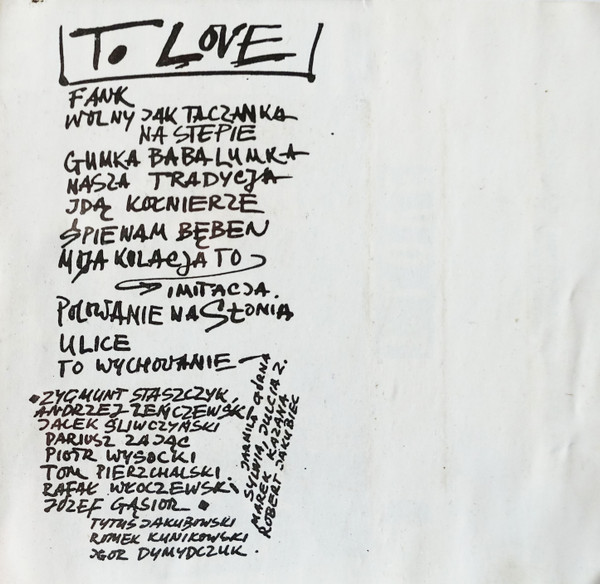 To LOVE
FANK
WOLNY JAK TACZANKA
NA STEPIE
GUMKA BABALUMKA
NASZA TRADYCJA
IDĄ KOŁNIERZE
ŚPIEWAM BĘBEN
MOJA KOLACJA TO
IMITACJA.
POLOWANIE NA SŁONIA
ULICE
TO WYCHOWANIE
ZYGMUNT STASZCZYK,
ANDRZEJ ZEŃCZEWSKI,
JACEK ŚLIWCZYŃSKI
DARIUSZ ZAJĄC
PIOTR WYSOCKI
TOM PIERZCHALSKI
RAFAŁ WŁOCZEWSKI
JÓZEF GĄSIOR
TYTUS JAKUBOWSKI
ROMEK KUNIKOWSKI
IGOR DYMYDCZUK.
JARMILA GÓRNA
SYLWIA, JULCIA Z.
MAREK KAZANA
ROBERT JAKUBIEC